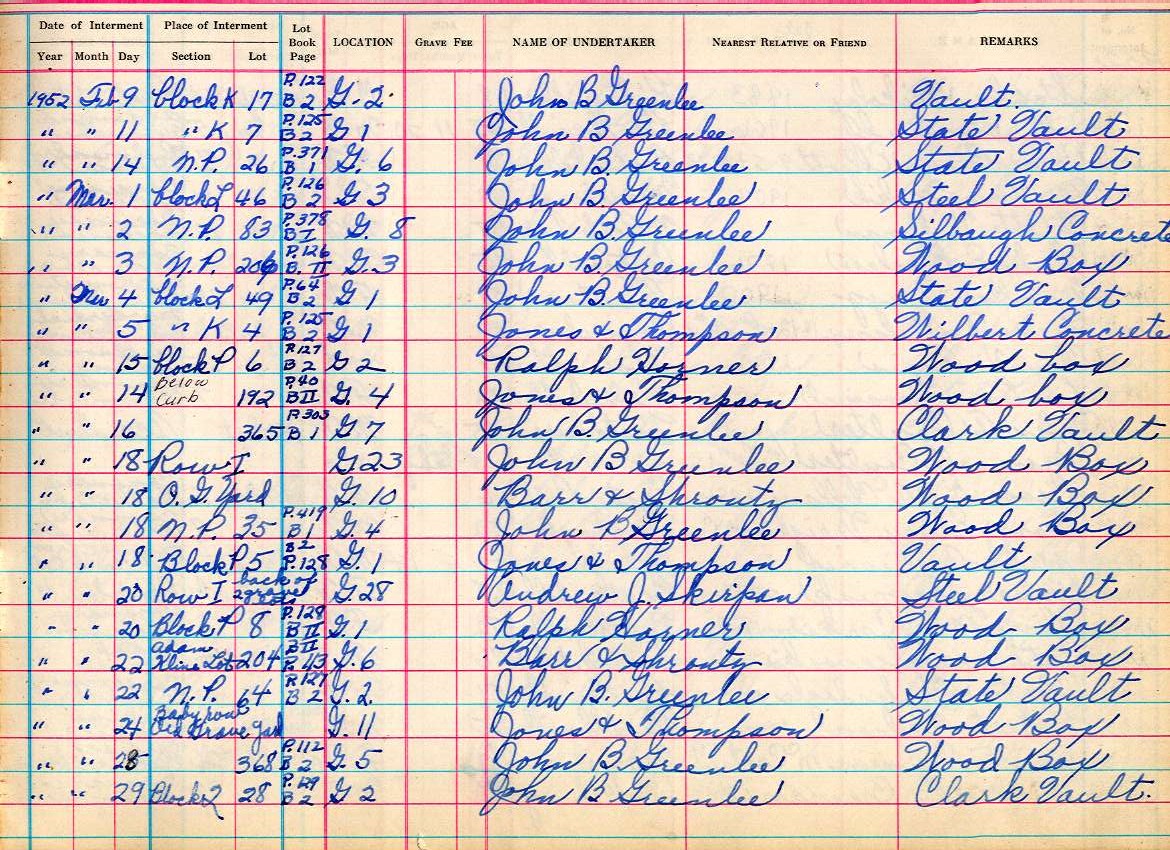 Date of Interment Place of Interment Lot Book Page LOCATION GRAVE FEE NAME OF UNDERTAKER NEAREST RELATIVE OR FRIEND REMARKS
Year Month Day Section Lot
1952 Feb 9 block K 17 P. 122 B 2 G. 2 John B Greenlee Vault.
" " 11 " K 7 P. 125 B 2 G 1 John B Greenlee State Vault
" " 14 N.P. 26 P. 371 B 1 G. 6 John B. Greenlee State Vault
" Mar. 1 block L 46 P. 126 B 2 G 3 John B. Greenlee Steel Vault
" " 2 N.P. 83 P. 378 B I G. 8 John B. Greenlee Silbaugh Concrete
" " 3 N.P. P. 126 B. II G. 3 John B. Greenlee Wood Box
" Mar 4 block L 49 P. 64 B 2 G 1 John B. Greenlee State Vault
" " 5 " K 4 P. 125 B 2 G 1 Jones & Thompson Wilbert Concrete
" " 15 block P 6 P. 127 B 2 G 2 Ralph Horner Wood box
" " 14 Below Curb 192 P. 40 B II G. 4 Jones & Thompson Wood box
" " 16 365 P. 303 B 1 G 7 John B. Greenlee Clark Vault
" " 18 Row I G 23 John B Greenlee Wood Box
" " 18 O. G. Yard G. 10 Barr & Shrontz Wood Box
" " 18 N.P. 35 P. 419 B 1 G. 4 John B Greenlee Wood Box
" " 18 Block P 5 B 2 P. 128 G. 1 Jones & Thompson Vault
" " 20 Row I back of 2 graves G 28 Andrew J. Skirpan Steel Vault
" " 20 Block P 8 P. 128 B II G. 1 Ralph Horner Wood Box
" " 22 Adam Kline Lot 204 B II P. 43 G. 6 Barr & Shrontz Wood Box
" " 22 N.P. 64 P. 127 B 2 G. 2 John B. Greenlee State Vault
" " 24 Baby row Old Grave yard G. 11 Jones & Thompson Wood Box
" " 28 368 P. 112 B 2 G 5 John B Greenlee Wood Box
" " 29 28 P. 129 B 2 G 2 John B Greenlee Clark Vault.